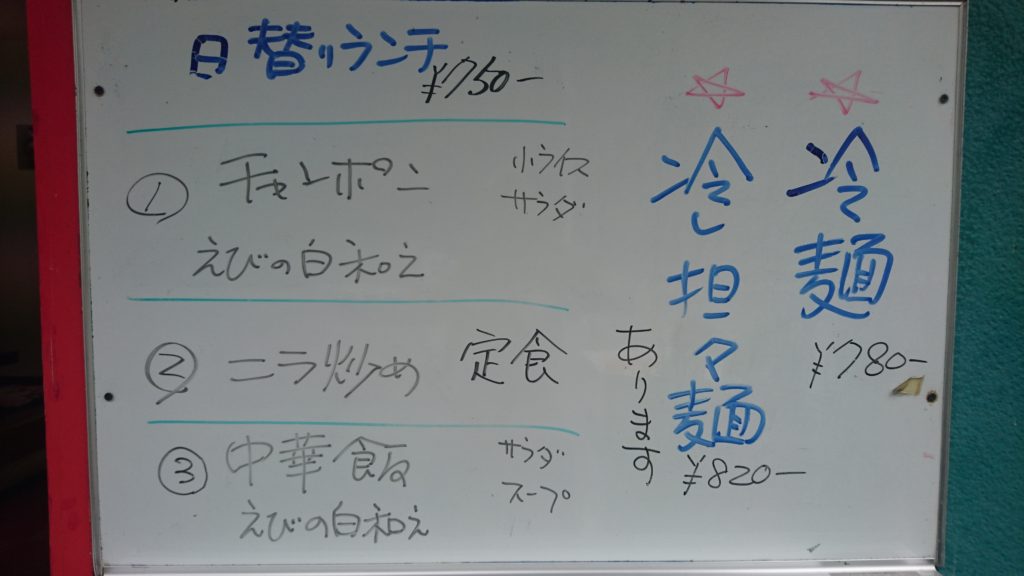 日替りランチ
¥750-
① チャンポン 小ライス
サラダ
えびの白和え
② ニラ炒め 定食
③ 中華飯 サラダ
スープ
えびの白和え
☆冷麺
¥780-
☆冷し担々麺
¥820-
あります